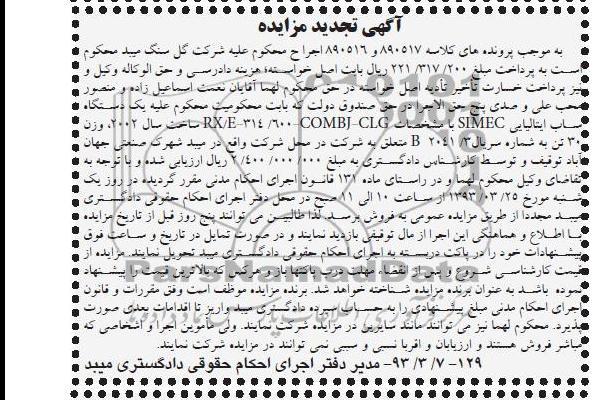 آگهی تجدید مزایده
به موجب پرونده های کلاسه ۸۹۰۵۱۷ و ۸۹۰۵۱۶ اجرا ح محکوم علیه شرکت گل سنگ میبد محکوم
است به پرداخت مبلغ ۲۲۱/۳۱۷/۲۰۰ ریال بابت اصل خواسته؛ هزینه دادرسی و حق الوکاله وکیل و
نیز پرداخت خسارت تأخیر تأدیه اصل خواسته در حق محکوم لهما آقایان نعمت اسماعیل زاده و منصور
محب علی و صدی پنج حق الاجرا در حق صندوق دولت که بابت محکومیت محکوم علیه یک دستگاه
ساب ایتالیایی SIMEC با مشخصات RX/E-۳۱۴ /۶۰۰-COMBJ-CLG ساخت سال ۲۰۰۲، وزن
۳۰ تن به شماره سریال B ۲۰۴۱/۳ متعلق به شرکت در محل شرکت واقع در میبد شهرک صنعتی جهان
آباد توقیف و توسط کارشناس دادگستری به مبلغ ۲/۴۰۰/۰۰۰/۰۰۰ ریال ارزیابی شده و با توجه به
تقاضای وکیل محکوم لهما و در راستای ماده ۱۳۱ قانون اجرای احکام مدنی مقرر گردیده در روز یک
شنبه مورخ ۱۳۹۳/۰۳/۲۵ از ساعت ۱۰ الی ۱۱ صبح در محل دفتر اجرای احکام حقوقی دادگستری
میبد مجددا از طریق مزایده عمومی به فروش برسد. لذا طالبین می توانند پنج روز قبل از تاریخ مزایده
با اطلاع و هماهنگی این اجرا از مال توقیفی بازدید نمایند و در صورت تمایل در تاریخ و ساعت فوق
پیشنهادات خود را در پاکت دربسته به اجرای احکام حقوقی دادگستری میبد تحویل نمایند. مزایده از
قیمت کارشناسی شروع و پس از انقضاء مهلت درب پاکتها باز و هرکس که بالاترین قیمت را پیشنهاد
نموده باشد به عنوان برنده مزایده شناخته خواهد شد. برنده مزایده موظف است وفق مقررات و قانون
اجرای احکام مدنی مبلغ پیشنهادی را به حساب سپرده دادگستری میبد واریز تا اقدامات بعدی صورت
پذیرد. محکوم لهما نیز می توانند مانند سایرین در مزایده شرکت نمایند. ولی مأمورین اجرا و اشخاصی که
مباشر فروش هستند و ارزیابان و اقربا نسبی و سببی نمی توانند در مزایده شرکت نمایند.
۱۲۹- ۹۳/۳/۷- مدیر دفتر اجرای احکام حقوقی دادگستری میبد
ParsNamadData